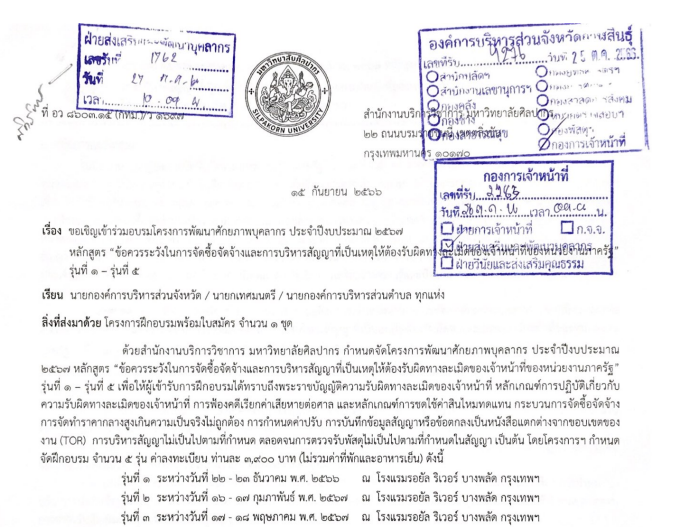 ฝ่ายส่งเสริมและพัฒนาบุคลากร
เลขรับที่ 1762
วันที่ 27 ก.ย.
เวลา 10.09 น
องค์การบริหารส่วนจังหวัดกาฬสินธุ์
เลขที่รับ 9276 วันที่ 25
สำนักปลัดฯ
สำนักงานเลขานุการฯ
กองคลัง
กองช่าง
กองพัสดุฯ
กองการเจ้าหน้าที่
มหาวิทยาลัยศิลปากร
SILPAKORN UNIVERSITY
ที่ อว ๘๖๐๓.๑๕ (กทม.)/ว
สำนักงานบริการวิชาการ มหาวิทยาลัยศิลปากร
๒๒ ถนนบรมราชชนนี เขตตลิ่งชัน
กรุงเทพมหานคร ๑๐๑๗๐
๑๕ กันยายน ๒๕๖๖
กองการเจ้าหน้าที่
เลขที่รับ
วันที่ เวลา น.
ฝ่ายการเจ้าหน้าที่ ก.จ.จ.
ฝ่ายส่งเสริมและพัฒนาบุคลากร
ฝ่ายวินัยและส่งเสริมคุณธรรม
เรื่อง ขอเชิญเข้าร่วมอบรมโครงการพัฒนาศักยภาพบุคลากร ประจำปีงบประมาณ ๒๕๖๗
หลักสูตร “ข้อควรระวังในการจัดซื้อจัดจ้างและการบริหารสัญญาที่เป็นเหตุให้ต้องรับผิดทางละเมิดของเจ้าหน้าที่ของหน่วยงานภาครัฐ”
รุ่นที่ ๑ – รุ่นที่ ๕
เรียน นายกองค์การบริหารส่วนจังหวัด / นายกเทศมนตรี / นายกองค์การบริหารส่วนตำบล ทุกแห่ง
สิ่งที่ส่งมาด้วย โครงการฝึกอบรมพร้อมใบสมัคร จำนวน ๑ ชุด
ด้วยสำนักงานบริการวิชาการ มหาวิทยาลัยศิลปากร กำหนดจัดโครงการพัฒนาศักยภาพบุคลากร ประจำปีงบประมาณ
๒๕๖๗ หลักสูตร “ข้อควรระวังในการจัดซื้อจัดจ้างและการบริหารสัญญาที่เป็นเหตุให้ต้องรับผิดทางละเมิดของเจ้าหน้าที่ของหน่วยงานภาครัฐ”
รุ่นที่ ๑ – รุ่นที่ ๕ เพื่อให้ผู้เข้ารับการฝึกอบรมได้ทราบถึงพระราชบัญญัติความรับผิดทางละเมิดของเจ้าหน้าที่ หลักเกณฑ์การปฏิบัติเกี่ยวกับ
ความรับผิดทางละเมิดของเจ้าหน้าที่ การฟ้องคดีเรียกค่าเสียหายต่อศาล และหลักเกณฑ์การชดใช้ค่าสินไหมทดแทน กระบวนการจัดซื้อจัดจ้าง
การจัดทำราคากลางสูงเกินความเป็นจริงไม่ถูกต้อง การกำหนดค่าปรับ การบันทึกข้อมูลสัญญาหรือข้อตกลงเป็นหนังสือแตกต่างจากขอบเขตของ
งาน (TOR) การบริหารสัญญาไม่เป็นไปตามที่กำหนด ตลอดจนการตรวจรับพัสดุไม่เป็นไปตามที่กำหนดในสัญญา เป็นต้น โดยโครงการฯ กำหนด
จัดฝึกอบรม จำนวน ๕ รุ่น ค่าลงทะเบียน ท่านละ ๓,๙๐๐ บาท (ไม่รวมค่าที่พักและอาหารเย็น) ดังนี้
รุ่นที่ ๑ ระหว่างวันที่ ๒๒ - ๒๓ ธันวาคม พ.ศ. ๒๕๖๖ ณ โรงแรมรอยัล ริเวอร์ บางพลัด กรุงเทพฯ
รุ่นที่ ๒ ระหว่างวันที่ ๑๖ - ๑๗ กุมภาพันธ์ พ.ศ. ๒๕๖๗ ณ โรงแรมรอยัล ริเวอร์ บางพลัด กรุงเทพฯ
รุ่นที่ ๓ ระหว่างวันที่ ๑๗ - ๑๘ พฤษภาคม พ.ศ. ๒๕๖๗ ณ โรงแรมรอยัล ริเวอร์ บางพลัด กรุงเทพฯ